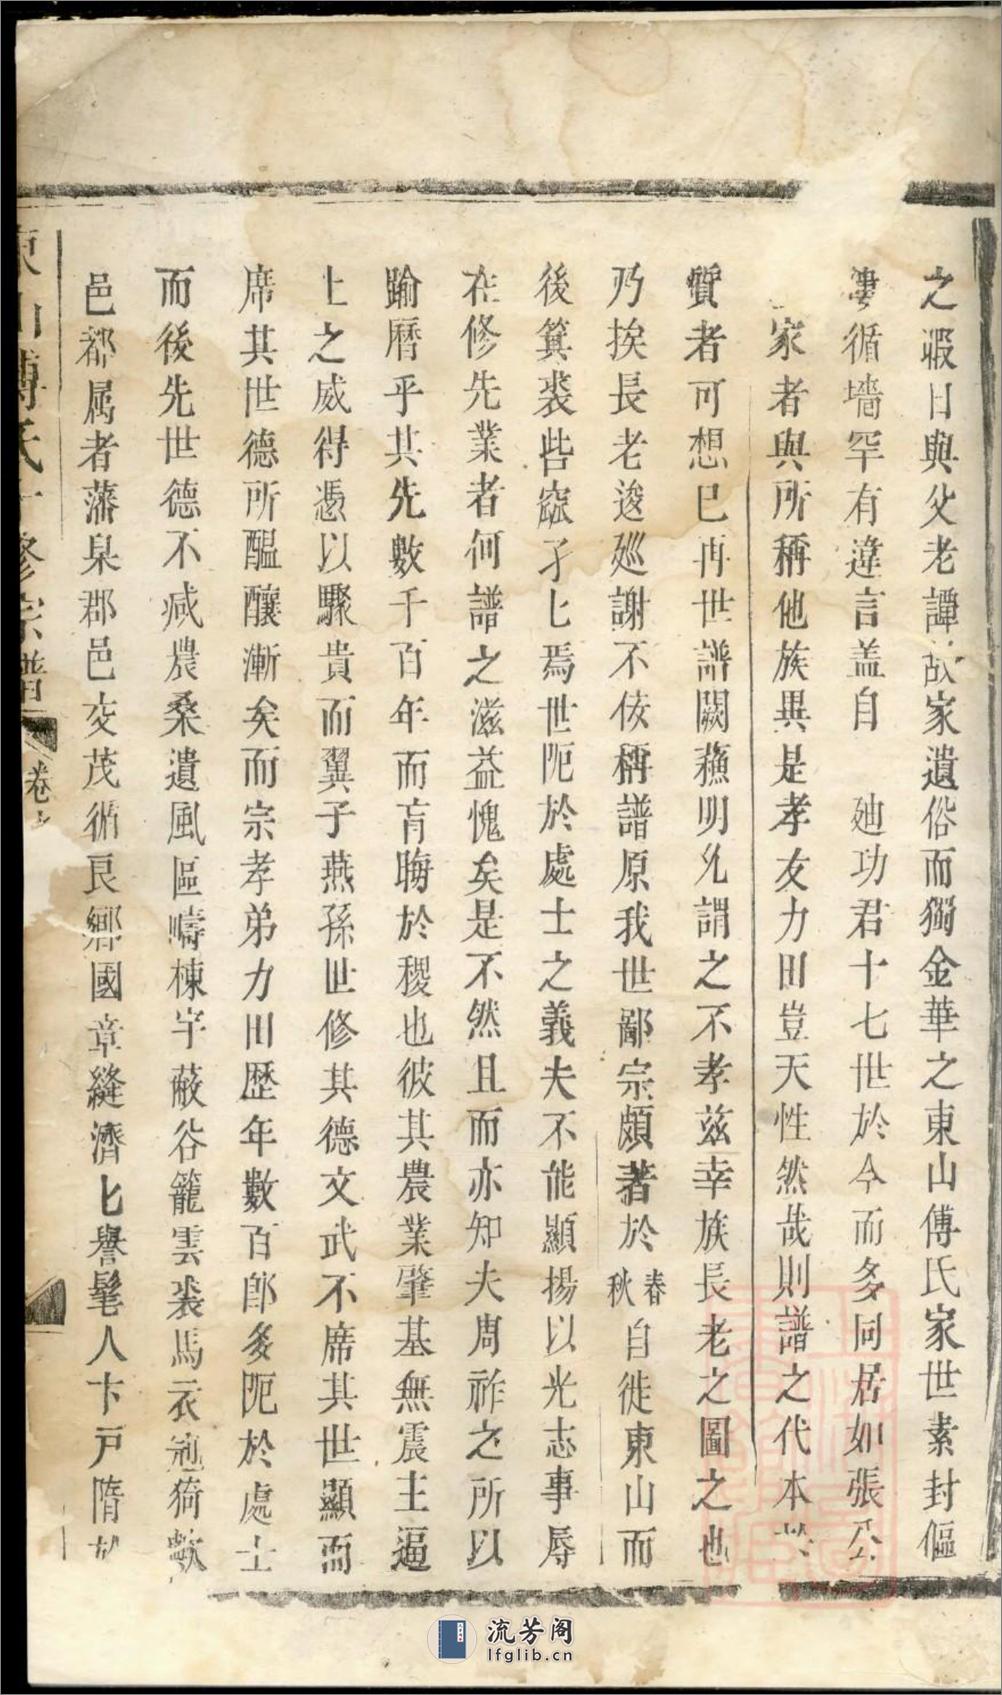 之暇日與父老譚故家遺俗而獨金華之東山傅氏家世素封傴
僂循墻罕有違言盖自 廸功君十七世於今而多同居如張公
家者與所稱他族異是孝友力田豈天性然哉則譜之代本於
質者可想已再世譜闕蘓明允謂之不孝茲幸族長老之圖之也
乃挨長老逡廵謝不侫稱譜原我世鄙宗頗著於春秋自徙東山而
後箕裘呰窳孑匕焉世阨於處士之義夫不能顯揚以光志事辱
在修先業者何譜之滋益愧矣是不然且而亦知夫周祚之所以
踰曆乎其先數千百年而育晦於稷也彼其農業肇基無震主逼
上之威得憑以驟貴而翼子燕孫世修其德文武不席其世顯而
席其世德所醞釀漸矣而宗孝弟力田歷年數百卽多阨於處士
而後先世德不烕農桑遺風區疇棟宇蔽谷籠雲裘馬衣冠猗歟
邑都属者藩臬郡邑交茂循良鄉國章縫濟匕譽髦人卞戸隋於
東山傅氏修宗譜 卷
流芳阁
lfglib.cn